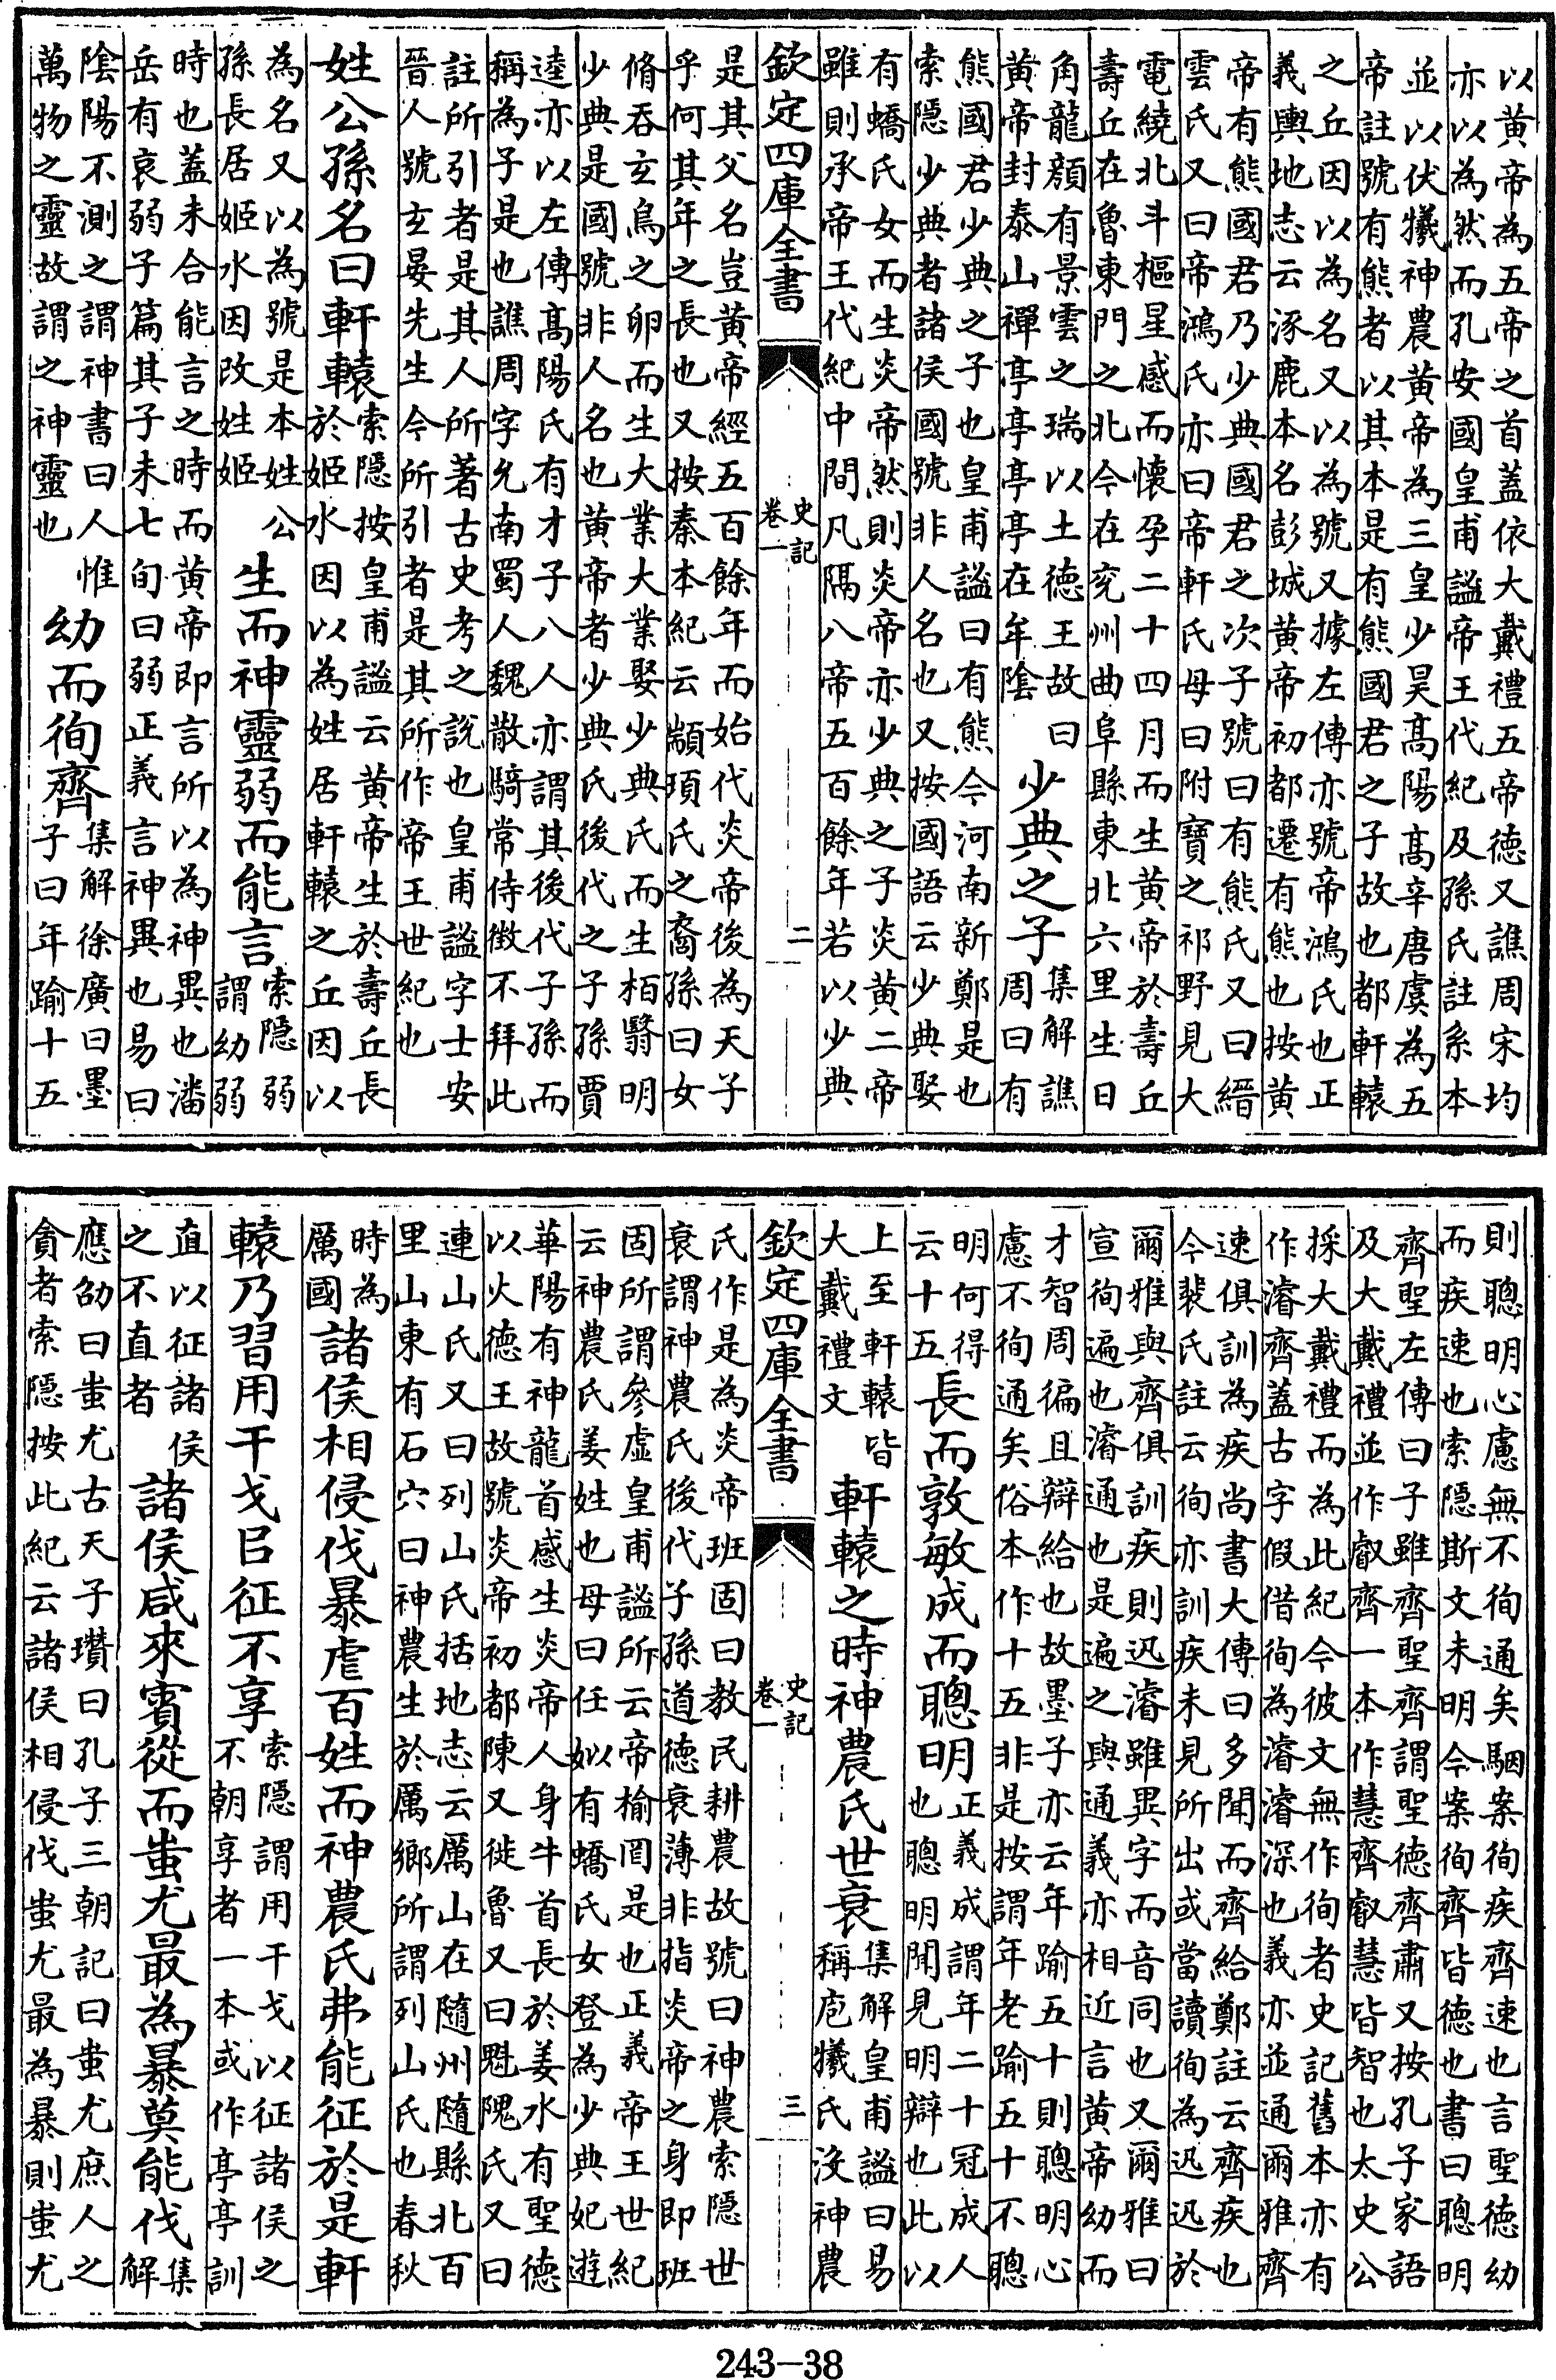 以黄帝為五帝之首蓋依大戴禮五帝徳又譙周宋均
亦以為然而孔安國皇甫謐帝王代紀及孫氏註系本
並以伏犧神農黄帝為三皇少昊髙陽髙辛唐虞為五
帝註號有熊者以其本是有熊國君之子故也都軒轅
之丘因以為名又以為號又據左傳亦號帝鴻氏也正
義輿地志云涿鹿本名彭城黄帝初都遷有熊也按黄
帝有熊國君乃少典國君之次子號曰有熊氏又曰縉
雲氏又曰帝鴻氏亦曰帝軒氏母曰附寶之祁野見大
電繞北斗樞星感而懐孕二十四月而生黄帝於壽丘
壽丘在魯東門之北今在兖州曲阜縣東北六里生日
角龍顔有景雲之瑞以土徳王故曰
黄帝封泰山禪亭亭亭亭在牟陰
少典之子
集解譙
周曰有
熊國君少典之子也皇甫謐曰有熊今河南新鄭是也
索隠少典者諸侯國號非人名也又按國語云少典娶
有蟜氏女而生炎帝然則炎帝亦少典之子炎黄二帝
雖則承帝王代紀中間凡隔八帝五百餘年若以少典
欽定四庫全書
史記
卷一
二
是其父名豈黄帝經五百餘年而始代炎帝後為天子
乎何其年之長也又按秦本紀云顓頊氏之裔孫曰女
脩吞玄鳥之卵而生大業大業娶少典氏而生栢翳明
少典是國號非人名也黄帝者少典氏後代之子孫賈
逵亦以左傳髙陽氏有才子八人亦謂其後代子孫而
稱為子是也譙周字允南蜀人魏散騎常侍徴不拜此
註所引者是其人所著古史考之說也皇甫謐字士安
晉人號玄晏先生今所引者是其所作帝王世紀也
姓公孫名曰軒轅
索隠按皇甫謐云黄帝生於壽丘長
於姬水因以為姓居軒轅之丘因以
為名又以為號是本姓公
孫長居姬水因改姓姬
生而神靈弱而能言
索隠弱
謂幼弱
時也蓋未合能言之時而黄帝即言所以為神異也潘
岳有哀弱子篇其子未七旬曰弱正義言神異也易曰
陰陽不測之謂神書曰人惟
萬物之靈故謂之神靈也
幼而徇齊
集解徐廣曰墨
子曰年踰十五
則聰明心慮無不徇通矣駰案徇疾齊速也言聖徳幼
而疾速也索隠斯文未明今案徇齊皆徳也書曰聰明
齊聖左傳曰子雖齊聖齊謂聖徳齊肅又按孔子家語
及大戴禮並作叡齊一本作慧齊叡慧皆智也太史公
採大戴禮而為此紀今彼文無作徇者史記舊本亦有
作濬齊蓋古字假借徇為濬濬深也義亦並通爾雅齊
速俱訓為疾尚書大傳曰多聞而齊給鄭註云齊疾也
今裴氏註云徇亦訓疾未見所出或當讀徇為迅迅於
爾雅與齊俱訓疾則迅濬雖異字而音同也又爾雅曰
宣徇遍也濬通也是遍之與通義亦相近言黄帝幼而
才智周徧且辯給也故墨子亦云年踰五十則聰明心
慮不徇通矣俗本作十五非是按謂年老踰五十不聰
明何得
云十五
長而敦敏成而聰明
正義成謂年二十冠成人
也聰明聞見明辯也此以
上至軒轅皆
大戴禮文
軒轅之時神農氏世衰
集解皇甫謐曰易
稱庖犧氏沒神農
欽定四庫全書
史記
卷一
三
氏作是為炎帝班固曰教民耕農故號曰神農索隠世
衰謂神農氏後代子孫道徳衰薄非指炎帝之身即班
固所謂參虛皇甫謐所云帝榆罔是也正義帝王世紀
云神農氏姜姓也母曰任姒有蟜氏女登為少典妃遊
華陽有神龍首感生炎帝人身牛首長於姜水有聖徳
以火徳王故號炎帝初都陳又徙魯又曰魁隗氏又曰
連山氏又曰列山氏括地志云厲山在隨州隨縣北百
里山東有石穴曰神農生於厲鄉所謂列山氏也春秋
時為
厲國
諸侯相侵伐暴虐百姓而神農氏弗能征於是軒
轅乃習用干戈㠯征不享
索隠謂用干戈以征諸侯之
不朝享者一本或作亭亭訓
直以征諸侯
之不直者
諸侯咸來賓從而蚩尤最為暴莫能伐
集
解
應劭曰蚩尤古天子瓚曰孔子三朝記曰蚩尤庶人之
貪者索隠按此紀云諸侯相侵伐蚩尤最為暴則蚩尤
243-38